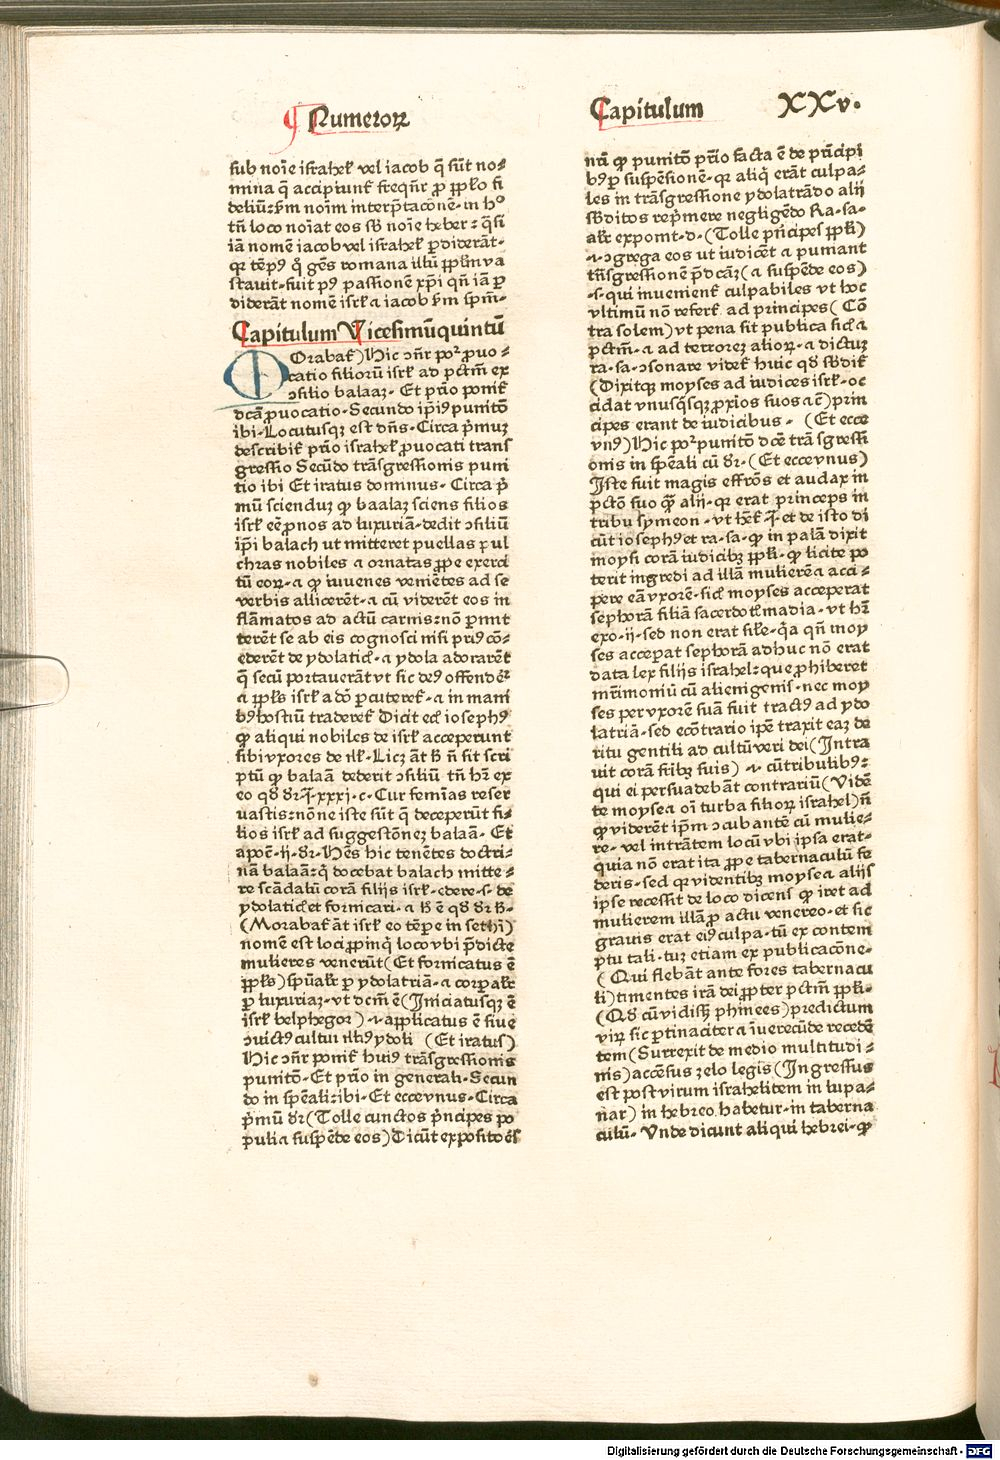 Numeroꝝ
Capitulum XXv.
sub noīe israhel̕ vel iacob q̄ sūt no⸗
mina q̄ accipiunt̕ freqn̄r ꝓ ꝓpl̕o fi
deliū: ẜm noīm interp̄tacōnē. in hº
tn̄ loco noīat eos sb̄ noīe heber: q̄si
iā nomē iacob vel israhel̕ ꝑdiderāt.
qꝛ tēpꝯ q̄ gēs romana illū ꝓpl̕m va
stavit. fuit pꝯ passionē xp̄i qn̄ iā ꝑ
diderāt nomē isrl̕ ⁊ iacob ẜm spm̄.
Capitulum Vicesimūquintū
MOrabat̕) Hic ↄn̄r poꝛ̕ ꝓuo⸗
catio filiorū isrl̕ ad pctm̄ ex
ↄsilio balaaꝫ. Et pr̄io ponit̕
dc̄a ꝓuocatio. Secundo ip̄iꝯ punitō
ibi. Locutusqꝫ est dn̄s. Circa p̄muꝫ
describit̕ pr̄io israhel̕ ꝓuocati trans
gressio Secūdo trāsgressionis puni
tio ibi Et iratus dominus. Circa p̄
mū sciendūꝫ ꝙ baalaꝫ sciens filios
isrl̕ eē ꝓnos ad luxuriā. dedit ↄsiliū
ip̄i balach ut mitteret puellas pul
chras nobiles ⁊ ornatas ꝓpe exerci
tū eoꝝ. ⁊ ꝙ iuvenes veniētes ad se
verbis allicerēt. ⁊ cū viderēt eos in
flāmatos ad actū carnis: nō ꝑmit
terēt se ab eis cognosci nisi priꝯ cō⸗
ederēt de ydolatic̕. ⁊ ydola adorarēt
q̄ secū portauerāt vt sic deꝯ offendēr̕
⁊ ꝓpl̕s isrl̕ a dō ꝑcuteret̕. ⁊ in mani
bꝯ hostiū traderet̕ Dicit ec̄ iosephꝯ
ꝙ aliqui nobiles de isrl̕ acceperunt
sibi vxores de ill̕. Licꝫ āt h̄ n̄ sit scri
ptū ꝙ balaā dederit ↄsiliū tn̄ hr̄ ex
eo qd̕ dr̄. ī. xxxi. c. Cur feminas reser
vastis: nōne iste sūt q̄ deceperūt fi⸗
lios isrl̕ ad suggestōneꝫ balaā. Et
apoc̄. ij. dr̄. Hēs hic tenētes doctri⸗
nā balaā: q̄ docebat balach mitte⸗
re scādalū corā filijs isrl̕. edere .s. de
ydolatic̕ et fornicari. ⁊ h̄ ē qd̕ dr̄ h̄.
(Morabat̕ āt isrl̕ eo tēpe in sethī)
nomē est loci ꝓpinq̄ loco vbi p̄dicte
mulieres venerūt (Et fornicatus ē
ꝓpl̕s) spūal̕r ꝑ ydolatriā. ⁊ corꝑal̕r
ꝑ luxuriaꝫ. vt dcm̄ ē (Iniciatusqꝫ ē
isrl̕ belphegor) .i. applicatus ē siue
ↄuictꝯ cultui illiꝯ ydoli (Et iratus)
Hic ↄn̄r ponit̕ huiꝯ trāsgressionis
punitō. Et pr̄io in generali. Secun
do in spēali: ibi. Et ecce vnus. Circa
p̄mū dr̄ (Tolle cunctos p̄ncipes po
puli ⁊ suspēde eos) Dicūt expositoēs
nr̄i ꝙ punitō pr̄io facta ē de pr̄incipi
bꝯ ꝑ suspēsionē. qꝛ aliq̄ erāt culpa⸗
les in trāsgressione ydolatrādo alij
sb̄ditos rep̄mere negligēdo Ra. sa.
al̕r exponit. d. (Tolle pr̄icipes ꝓpl̕i)
.i. ↄgrega eos ut iudicēt ⁊ puniant
trāsgressionē p̄dcāꝫ (⁊ suspēde eos)
.s. qui invenient̕ culpabiles vt hoc
vltimū nō refert̕ ad principes (Cō
tra solem) vt pena sit publica sic̕ ⁊
pctm̄. ⁊ ad terroreꝫ alioꝝ. ⁊ dictuꝫ
ra. sa. ↄsonare videt̕ huic qd̕ sb̄dit̕
(Dixitqꝫ moyses ad iudices isrl̕. oc
cidat vnusq̄sqꝫ ꝓxīos suos ⁊c̄) prin
cipes erant de iudicibus. (Et ecce
vnꝯ) Hic poꝛ̕ punitō dcē trāsgressi
onis in spēali cū dr̄. (Et ecce vnus)
Iste fuit magis effrōs et audax in
pctō suo q̄ȝ alij. qꝛ erat princeps in
tribu symeon. vt hēt̕ ī. et de isto di
cūt iosephꝯ et ra. sa. ꝙ in palā dixit
moysi corā iudicibꝫ ꝓpl̕i. ꝙ licite po
terit ingredi ad illā mulierē ⁊ acci⸗
pere eā vxorē. sic̕ moyses acceperat
sephorā filiā sacerdotꝭ madiā. vt hr̄
exo. ij. sed non erat sil̕e. q̄a qn̄ moy
ses accepat sephorā adhuc nō erat
data lex filijs israhel: que ꝓhiberet
mr̄imoniū cū alienigenis. nec moy
ses per vxorē suā fuit tractꝯ ad ydo
latriā. sed ecōtrario ipē traxit eaꝫ de
ritu gentili ad cultū veri dei (Intra
uit corā frībꝫ suis) .i. cūtribulibꝯ:
qui ei persuadebāt contrariū (Vidē
te moyse ⁊ oī turba filioꝝ israhel) n̄
ꝙ viderēt ip̄m ↄcubantē cū mulie⸗
re. vel intrātem locū vbi ipsa erat.
quia nō erat ita ꝓpe tabernaculū fe
deris. sed qꝛ videntibꝫ moyse ⁊ alijs
ipse recessit de loco dicens ꝙ iret ad
mulierem illā ꝓ actu venereo. et sic
gravis erat eiꝯ culpa. tū ex contem
ptu tali. tuꝫ etiam ex publicacōne.
(Qui flebāt ante fores tabernacu
li) timentes irā dei ꝓpter pctm̄ ꝓpl̕i.
(Qd̕ cū vidisꝫ phinees) predictum
virū sic ꝑtinaciter ⁊ īuerecūde recedē
tem (Surrexit de medio multitudi⸗
nis) accēsus zelo legis (Ingressus
est post virum israhelitem in lupa⸗
nar) in hebreo habetur. in taberna
culū. Vnde dicunt aliqui hebrei. ꝙ
Digitalisierung gefördert durch die Deutsche Forschungsgemeinschaft - DFG